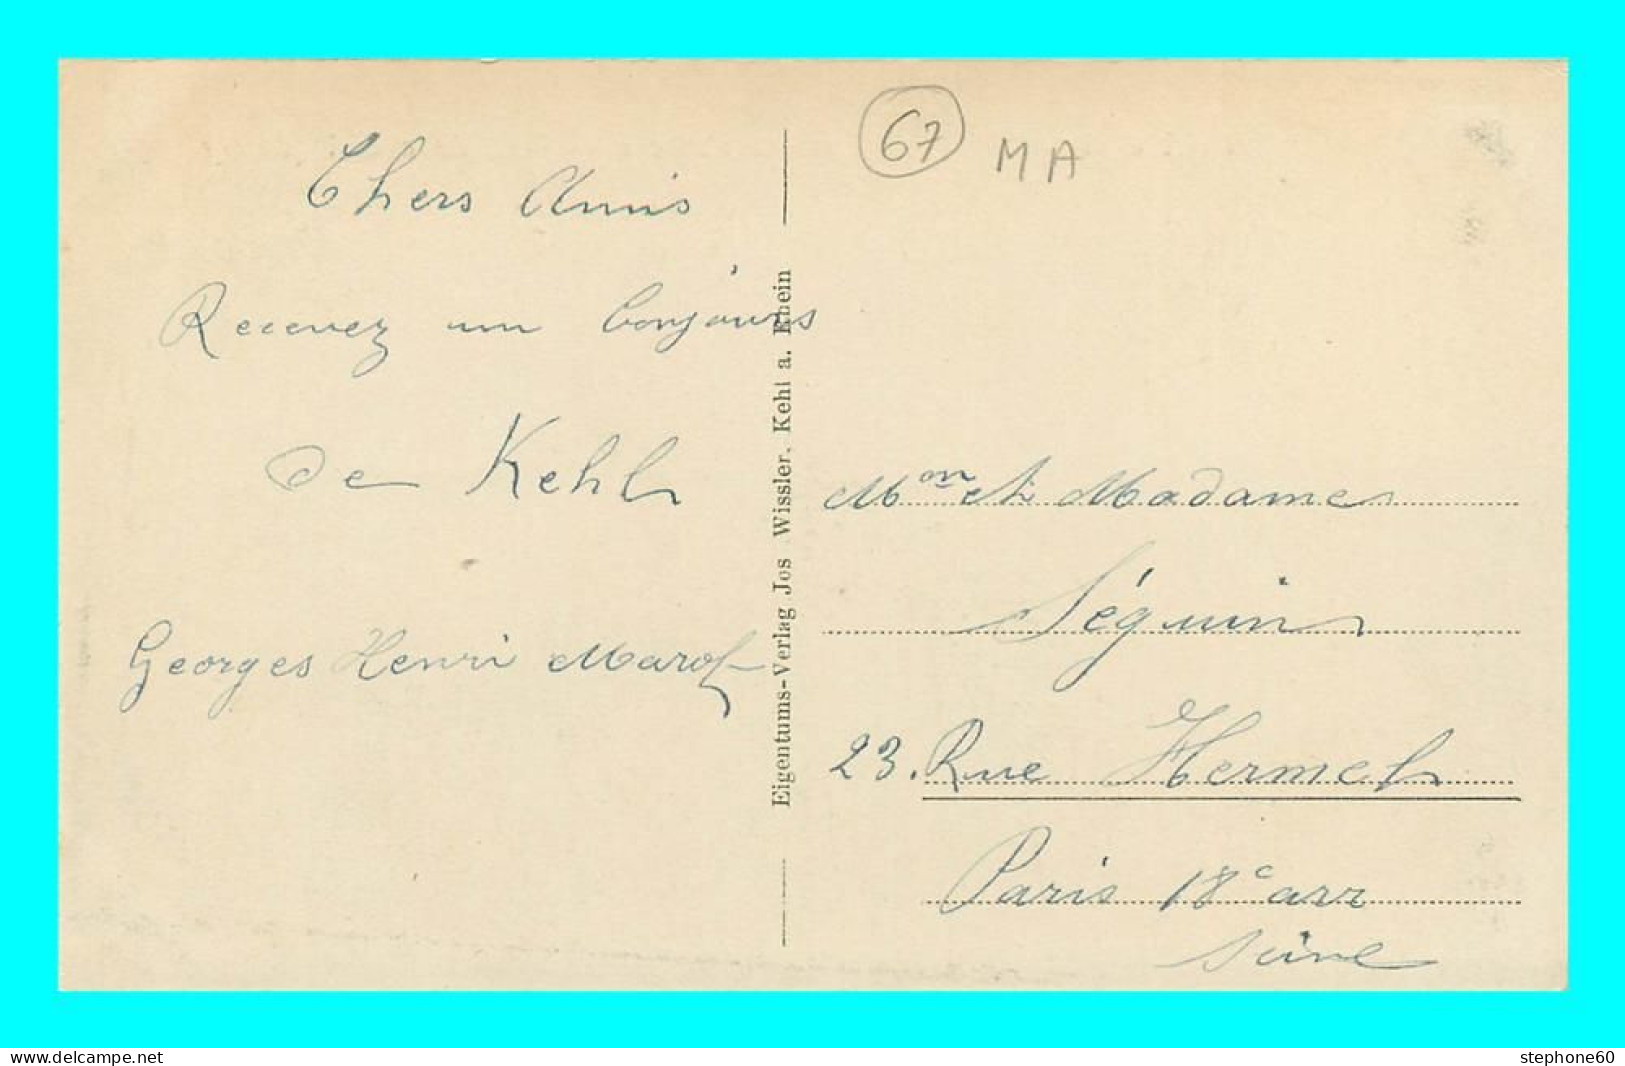 67 MA
Chers Amis
Recevez un bonjours
de Kehl
Georges Henri Marot
Eigentums-Verlag Jos Wissler. Kehl a. Rhein
Mon et Madame
Séguin
23. Rue Hermel
Paris 18e arr
Seine
www.delcampe.net
stephone60